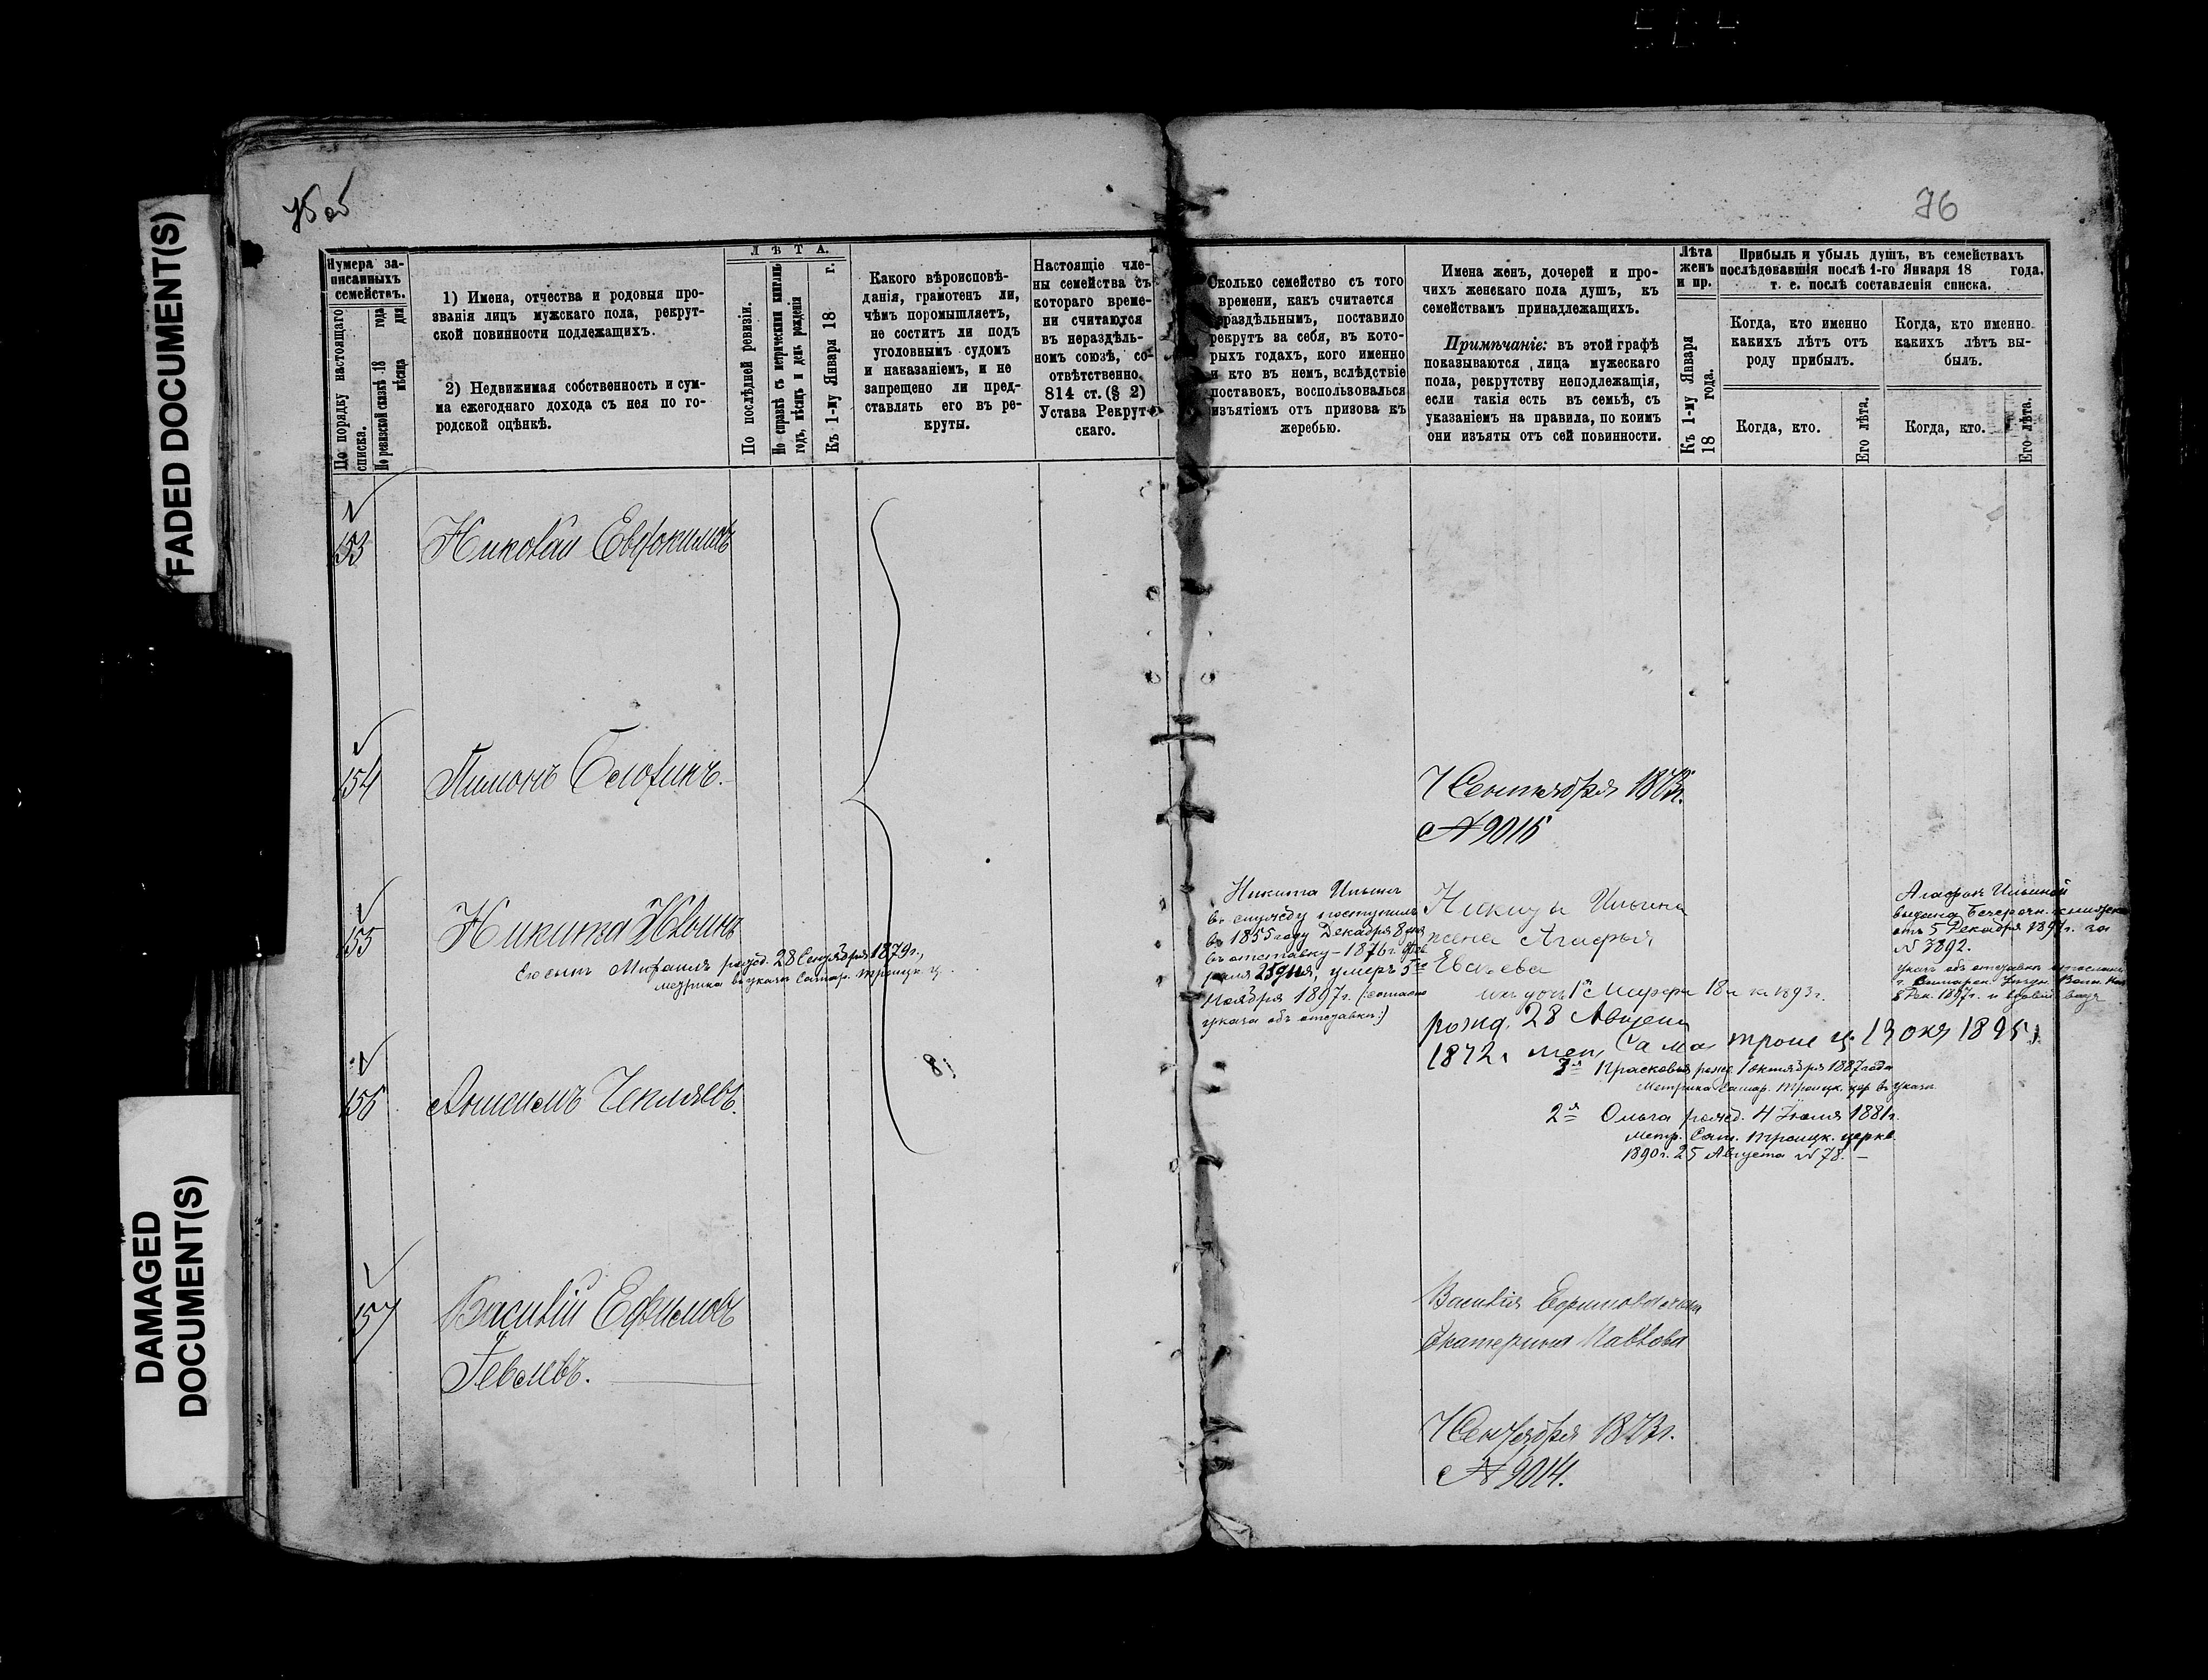 FADED DOCUMENT(S)
DAMAGED
DOCUMENT(S)
75 об
Нумера за-
писанныхъ
семействъ.
По порядку настоящаго
списка.
По ревизской сказкѣ 18 года
мѣсяца дня
1) Имена, отчества и родовыя про-
званія лицъ мужскаго пола, рекрут-
ской повинности подлежащихъ.
2) Недвижимая собственность и сум-
ма ежегоднаго дохода съ нея по го-
родской оцѣнкѣ.
ЛѢТА.
По послѣдней ревизіи.
По справкѣ съ метрическими книгами
годъ, мѣсяцъ и день рожденія
Къ 1-му Января 18 г.
Какого вѣроисповѣ-
данія, грамотенъ ли,
чѣмъ поромышляетъ,
не соститъ ли подъ
уголовнымъ судомъ
и наказаніемъ, и не
запрещено ли пред-
ставлять его въ ре-
круты.
Настоящіе чле-
ны семейства съ
котораго време-
ни считаются
въ нераздѣль-
номъ союзѣ, со-
отвѣтственно
814 ст. (§ 2)
Устава Рекрут-
скаго.
153
Николай Евдокимовъ
154
Пимонъ
155
Никита Ильинъ
Его сынъ Михаилъ рожд. 28 Сентября 1879 г.,
метрика въ указѣ Самар. Троицк. ц.
156
157
Василій Ефимовъ
76
Сколько семейство съ того
времени, какъ считается
нераздѣльнымъ, поставило
рекрутъ за себя, въ кото-
рыхъ годахъ, кого именно
и кто въ немъ, вслѣдствіе
поставокъ, воспользовалься
изъятіемъ отъ призова къ
жеребью.
Имена женъ, дочерей и про-
чихъ женскаго пола душъ, къ
семействамъ принадлежащихъ.
Примѣчаніе: въ этой графѣ
показываются лица мужескаго
пола, рекрутству неподлежащія,
если такія есть въ семьѣ, съ
указаніемъ на правила, по коимъ
они изъяты отъ сей повинности.
Лѣта
женъ
и пр.
Къ 1-му Января
18 года.
Прибыль и убыль душъ, въ семействахъ
послѣдовавшія послѣ 1-го Января 18 года.
т. е. послѣ составленія списка.
Когда, кто именно
какихъ лѣтъ отъ
роду прибылъ.
Когда, кто именно
какихъ лѣтъ вы-
былъ.
Когда, кто.
Его лѣта.
Когда, кто.
Его лѣта.
7 Сентября 1873 г.
№ 9015
Никита Ильинъ
въ службу поступилъ
въ 1855 году Декабря 8 дня
въ отставку – 1876 г.
25 дня, умеръ 5го
Ноября 1897 г. (согласно
указа объ отставки:)
Никиты Ильина
жена Агафья
ихъ дочь 1я
рожд. 28
1872 г
3я Прасковья рожд. 1 Октября 1887 года
Метрика Самар. Троицк. цер. въ указѣ
2я Ольга рожд. 4 Іюля 1881 г.
метр. Сам. Троицк. церкв.
1890 г. 25 Августа № 78. –
Ильиной
выдана
отъ 5 Декабря 1897 г. за
№ 3892.
указъ объ отставкѣ
8 Дек. 1897 г.
Василія Ефимова жена
Екатерина Павлова
7 Сентября 1873 г.
№ 9014.